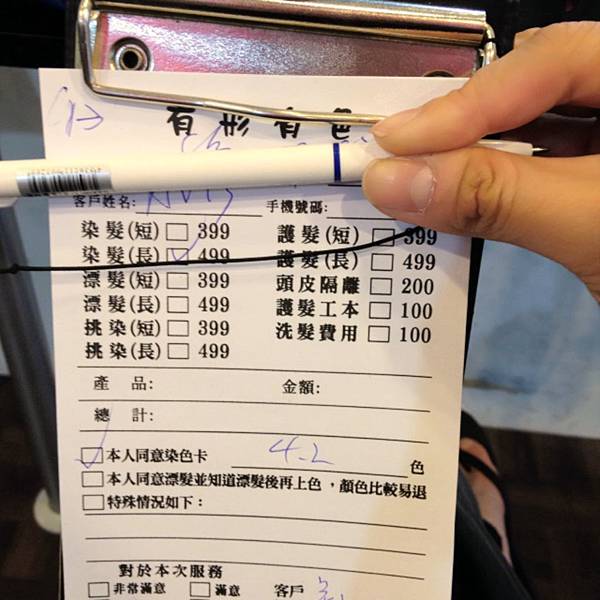 有形有色
客戶姓名: 手機號碼:
染髮(短) 399 護髮(短) 399
染髮(長) 499 護髮(長) 499
漂髮(短) 399 頭皮隔離 200
漂髮(長) 499 護髮工本 100
挑染(短) 399 洗髮費用 100
挑染(長) 499
產 品: 金額:
總 計:
本人同意染色卡 4-2 色
本人同意漂髮並知道漂髮後再上色，顏色比較易退
特殊情況如下：
對於本次服務
非常滿意 滿意 客戶